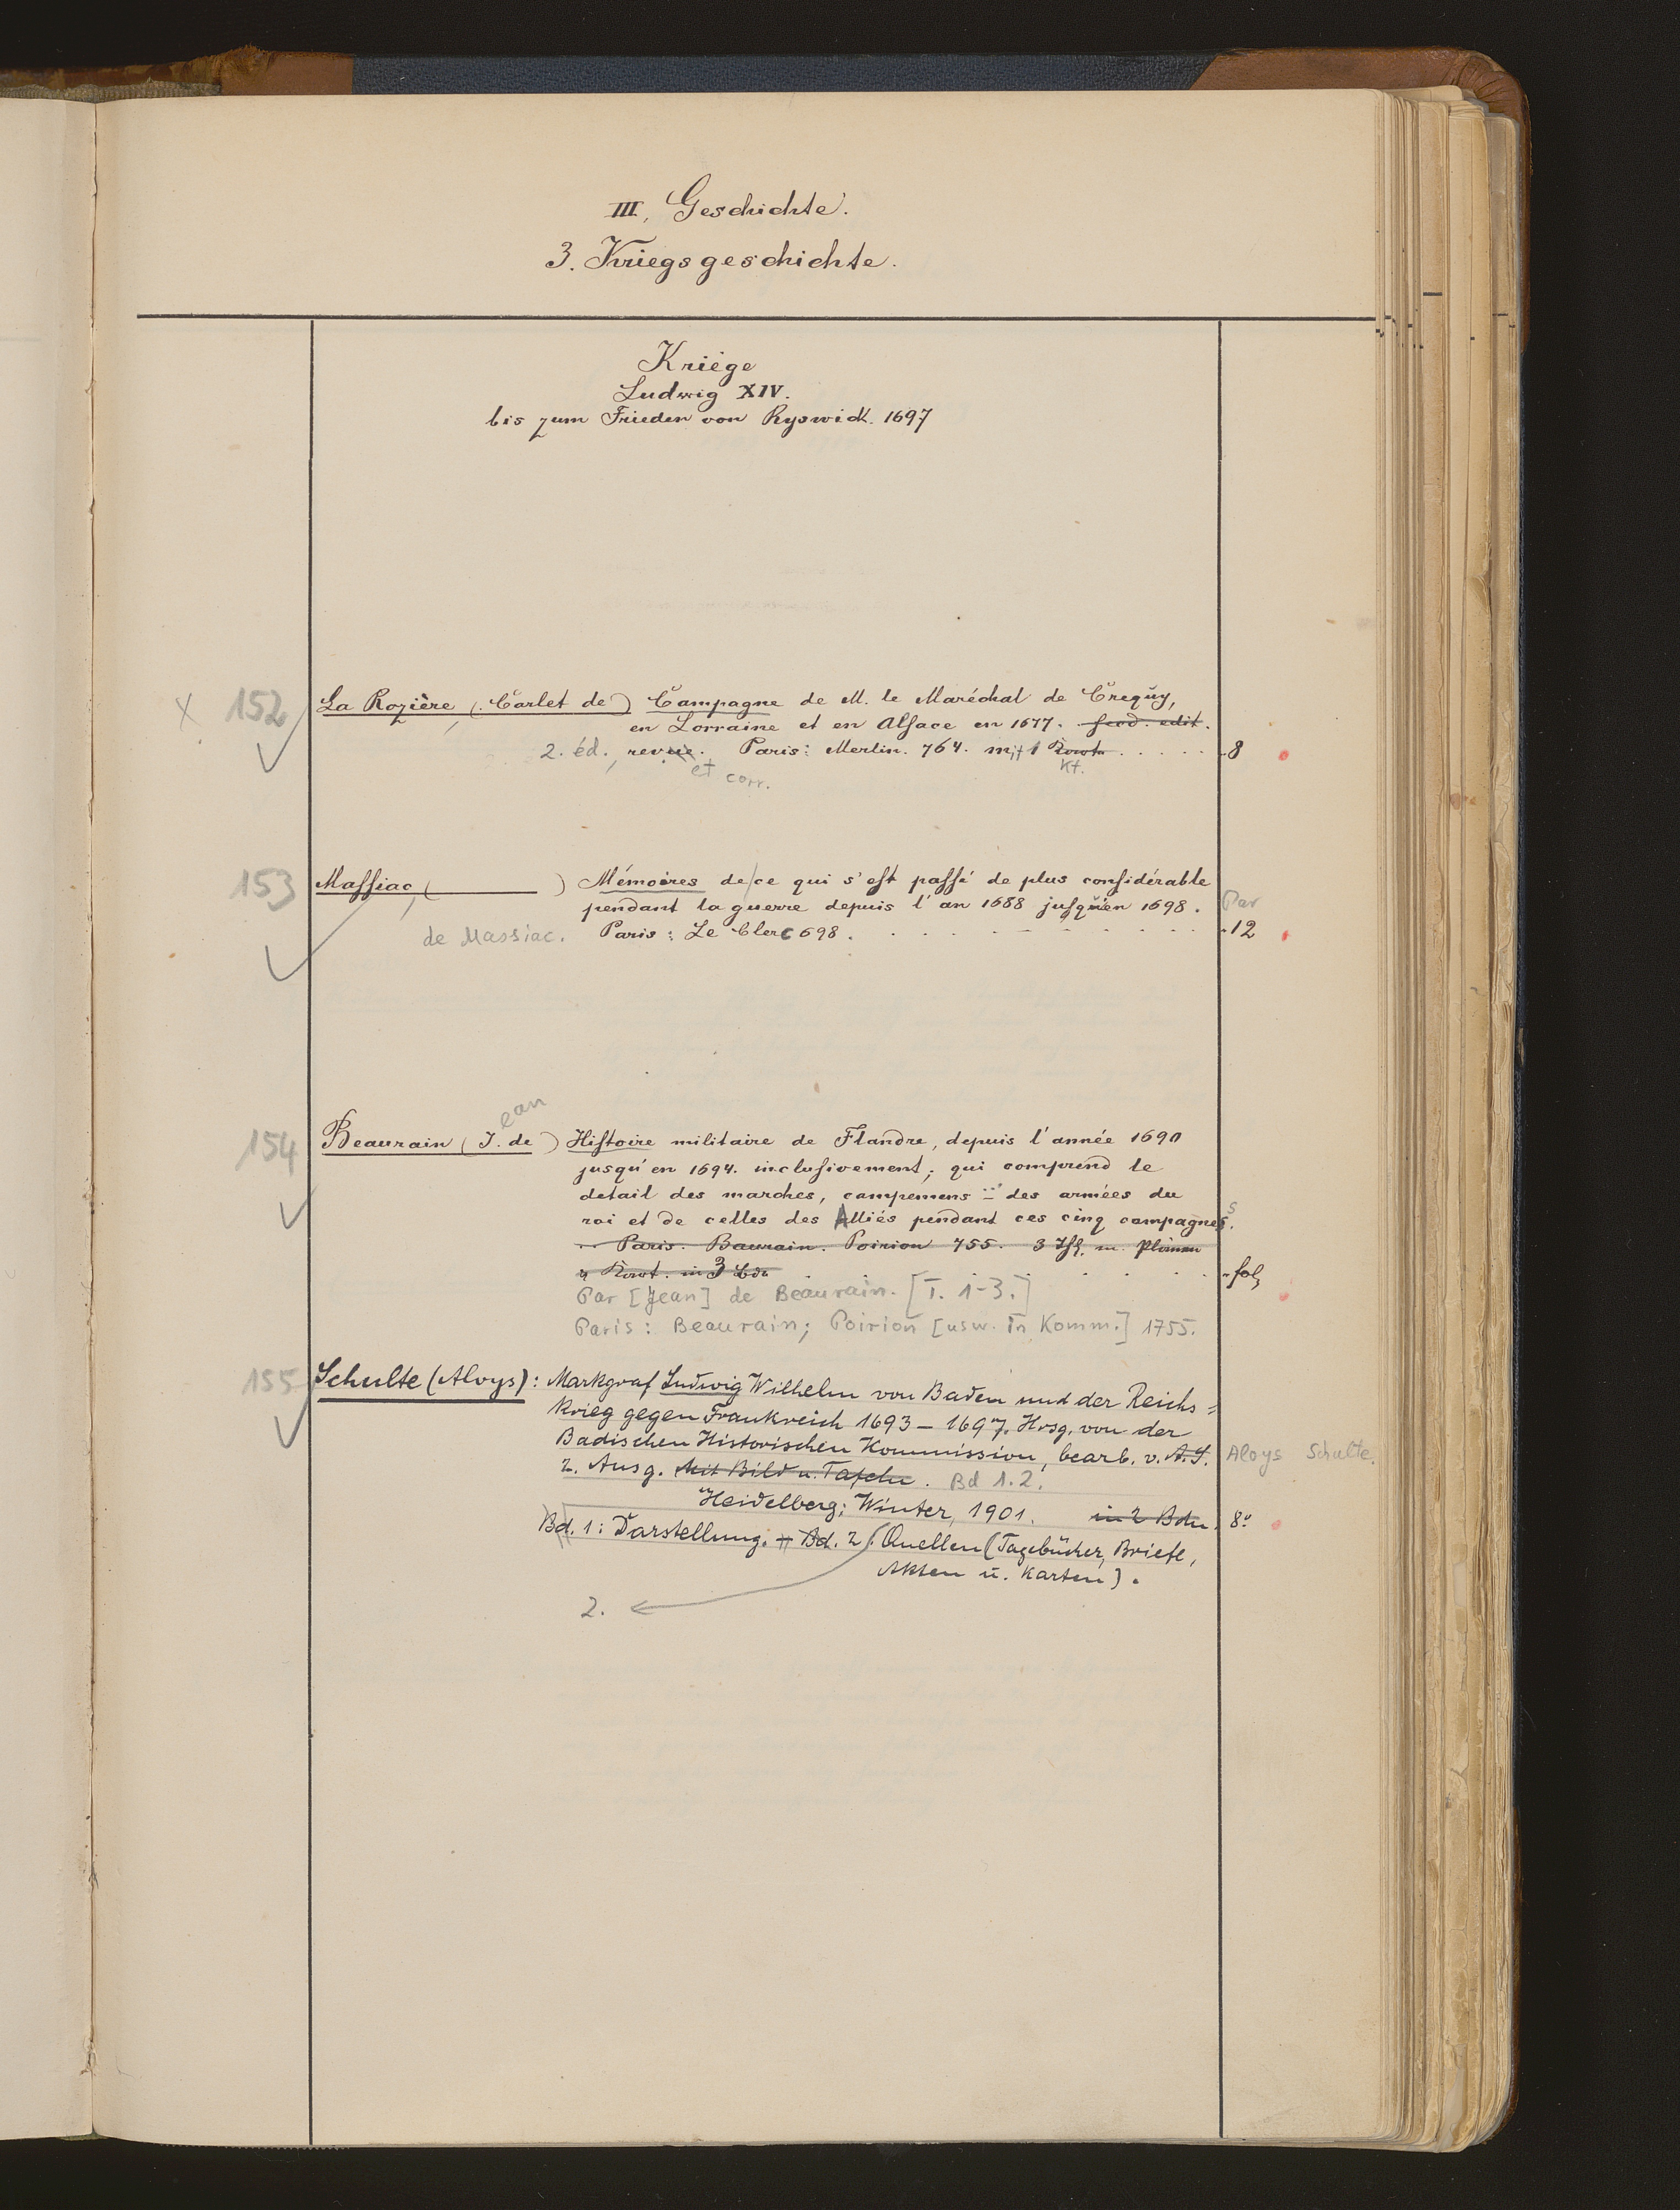 III. Geschichte.
3. Kriegsgeschichte.
Kriege
Ludwig XIV.
bis zum Frieden von Ryswick. 1697
x 152 La Rozière, (Carlet de) Campagne de M. le Maréchal de Crequy,
en Lorraine et en Alsace en 1677. secd. edit.
2. éd., revue. Paris: Merlin. 764. mit 1 Kart. 8
et corr. Kt.
153 Massiac, ( ) Mémoires de ce qui s'est passé de plus considérable
pendant la guerre depuis l'an 1688 jusqu'en 1698. Par
de Massiac. Paris: Le Clerc 698. 12
ean
154 Beaurain (J. de) Histoire militaire de Flandre, depuis l'année 1690
jusqu'en 1694. inclusivement; qui comprend le
detail des marches, campemens des armées du
roi et de celles des Alliés pendant ces cinq campagnes.
Paris. Baurain. Poirion 755. 3 Thl. m. Plänen
u Kart. in 3 Bdn fol.
Par [Jean] de Beaurain. [T. 1-3.]
Paris: Beaurain; Poirion [usw. in Komm.] 1755.
155 Schulte (Aloys): Markgraf Ludwig Wilhelm von Baden und der Reichs=
krieg gegen Frankreich 1693-1697. Hrsg. von der
Badischen Historischen Kommission, bearb. v. A.S. Aloys Schulte.
2. Ausg. Mit Bild u. Tafeln. Bd 1.2.
Heidelberg: Winter, 1901. in 2 Bdn. 8°
Bd. 1: Darstellung. Bd. 2: Quellen (Tagebücher, Briefe,
Akten u. Karten).
2.